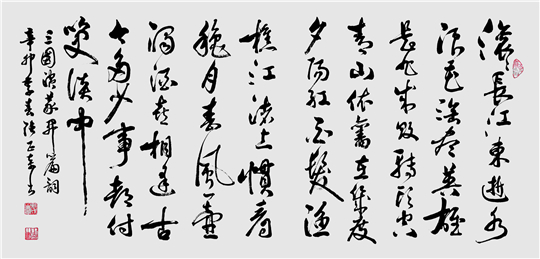 滚々長江東逝水
浪花淘尽英雄
是非成敗轉頭空
青山依舊在幾度
夕陽紅白髮漁
樵江渚上慣看
秋月春風一壺
濁酒喜相逢古
今多少事都付
笑談中
三國演義開篇詞
辛卯季春張正